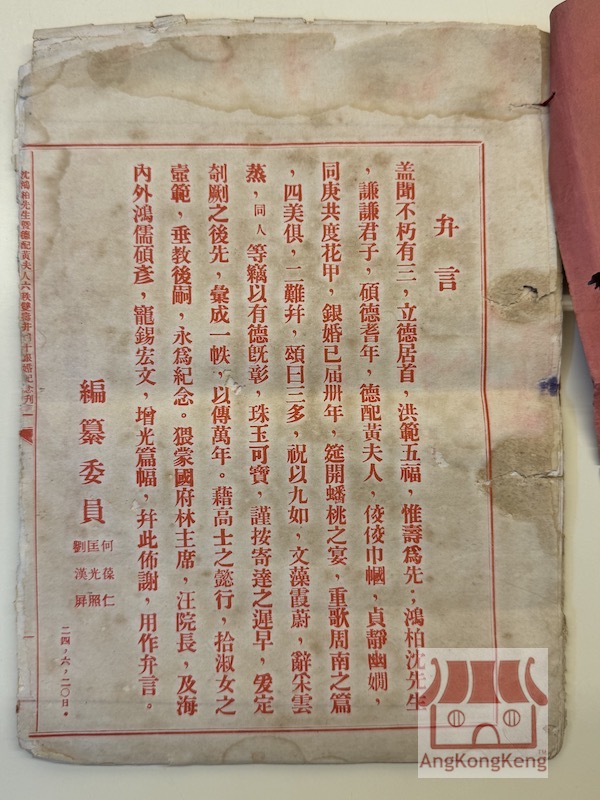 弁言
盖聞不朽有三，立德居首，洪範五福，惟壽爲先，鴻柏沈先生
，謙謙君子，碩德耆年，德配黃夫人，倰倰巾幗，貞靜幽嫻，
同庚共度花甲，銀婚已屆卅年，筵開蟠桃之宴，重歌周南之篇
，四美俱，二難幷，頌曰三多，祝以九如，文藻霞蔚，辭采雲
蒸，同人等竊以有德旣彰，珠玉可寶，謹按寄達之遲早，爰定
剞劂之後先，彙成一帙，以傳萬年。藉高士之懿行，拾淑女之
壼範，垂教後嗣，永爲紀念。猥蒙國府林主席，汪院長，及海
內外鴻儒碩彥，寵錫宏文，增光篇幅，幷此佈謝，用作弁言。
編纂委員
何葆仁
匡光照
劉漢屏
二四，六，二〇日。
沈鴻柏先生曁德配黃夫人六秩雙壽并卅十銀婚紀念刊
一
AngKongKeng
TM